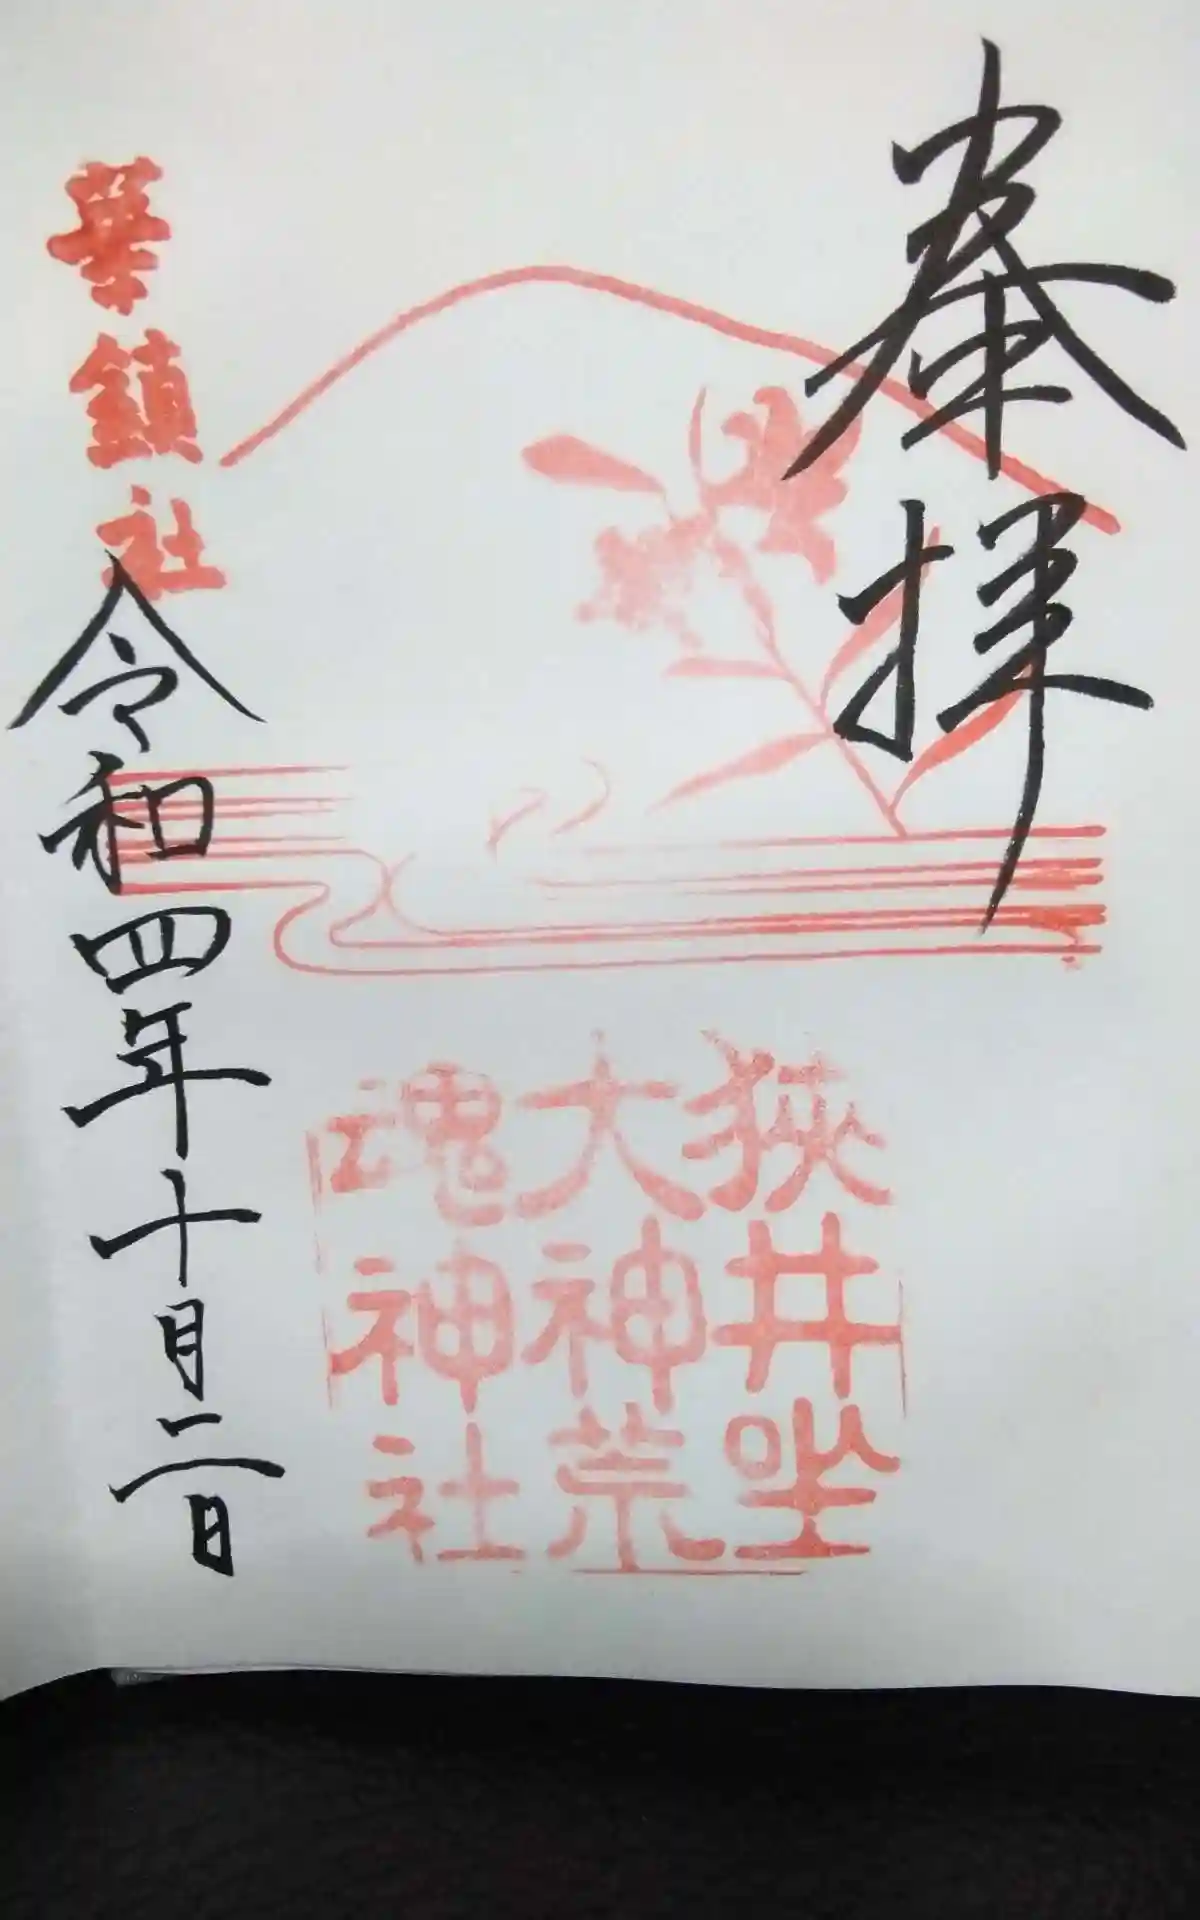 奉拝
狭井坐
大神荒
魂神社
華鎮社
令和四年十月二日